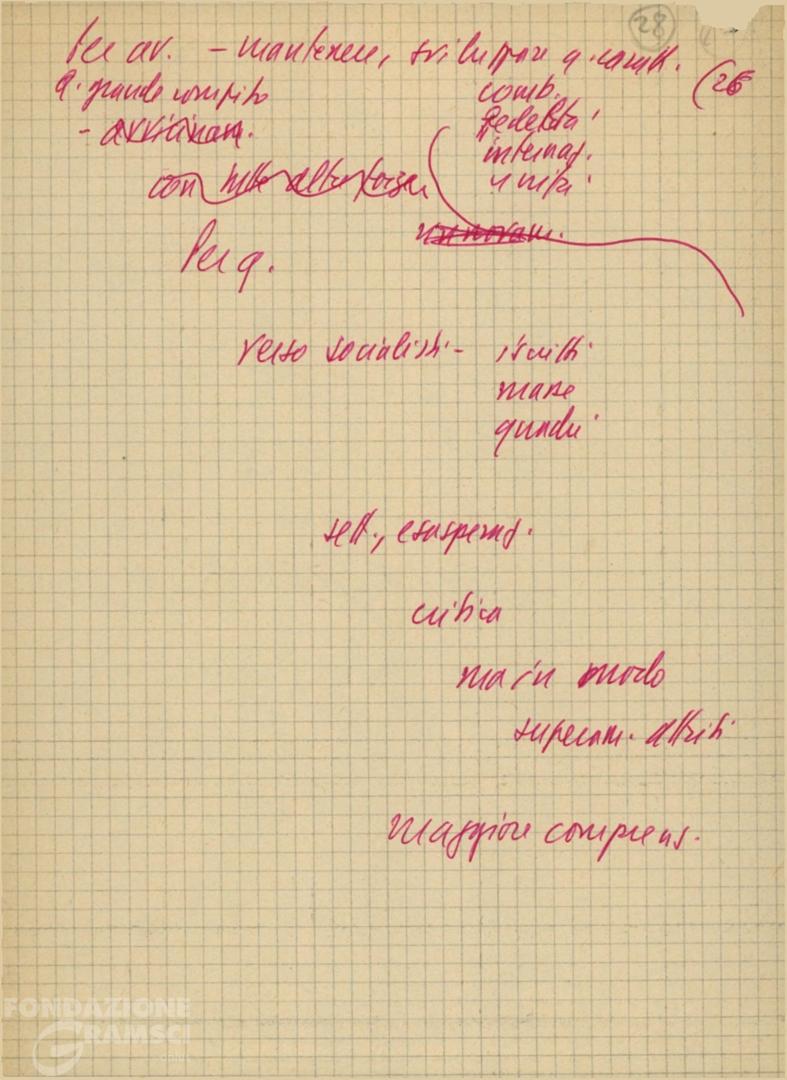 28
Per av. - mantenere, sviluppare q. caratt.
(26
q. grande compito
comb.
- avvicinam.
fedeltà
internaz.
con tutte altre forze
unità
rinnovam.
Per q.
verso socialisti - iscritti
masse
quadri
sett., esasperaz.
critica
ma in modo
superam. attriti
Maggiore comprens.
FONDAZIONE
GRAMSCI